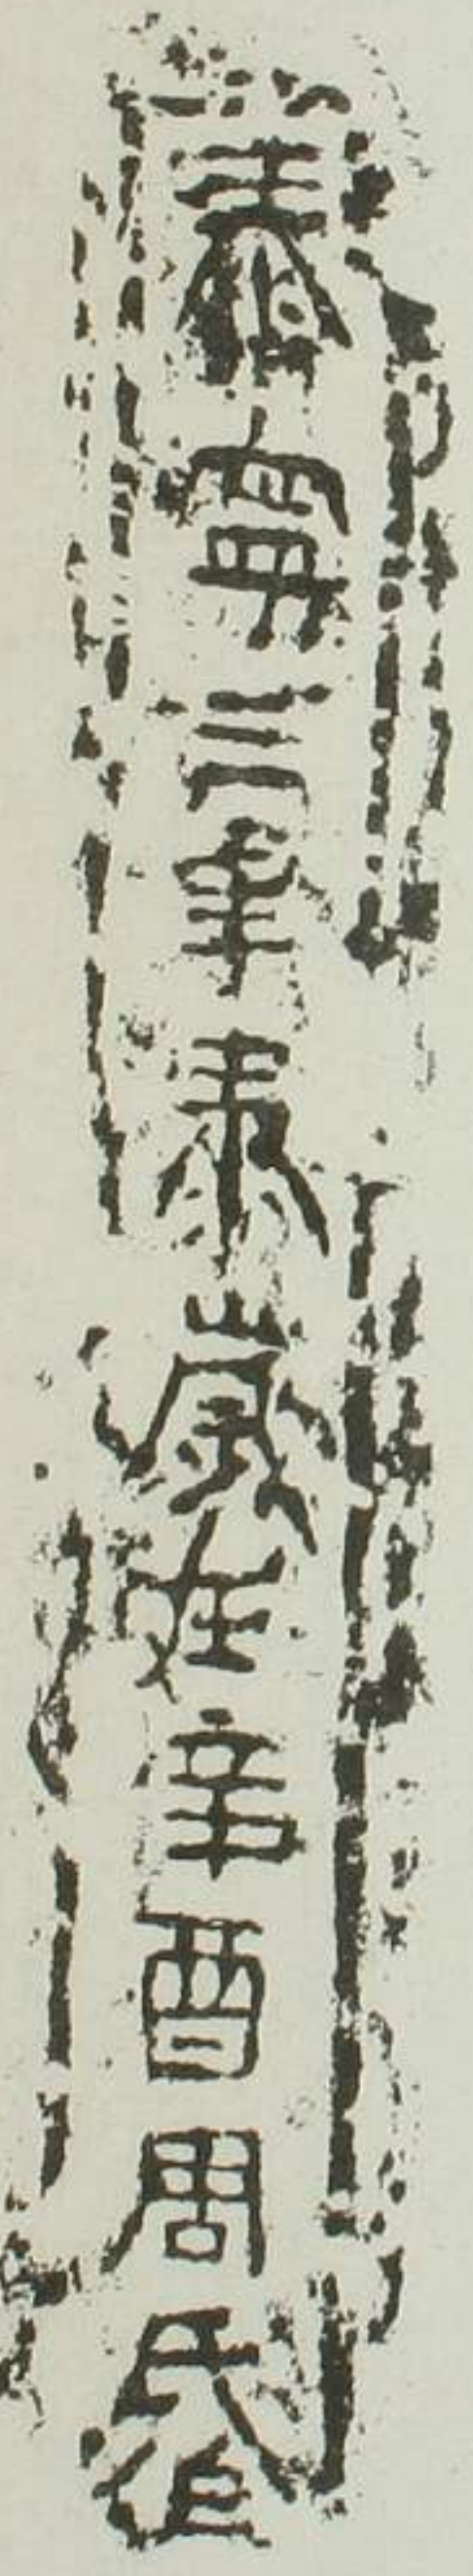 泰寧三年泰歲在辛酉周氏作